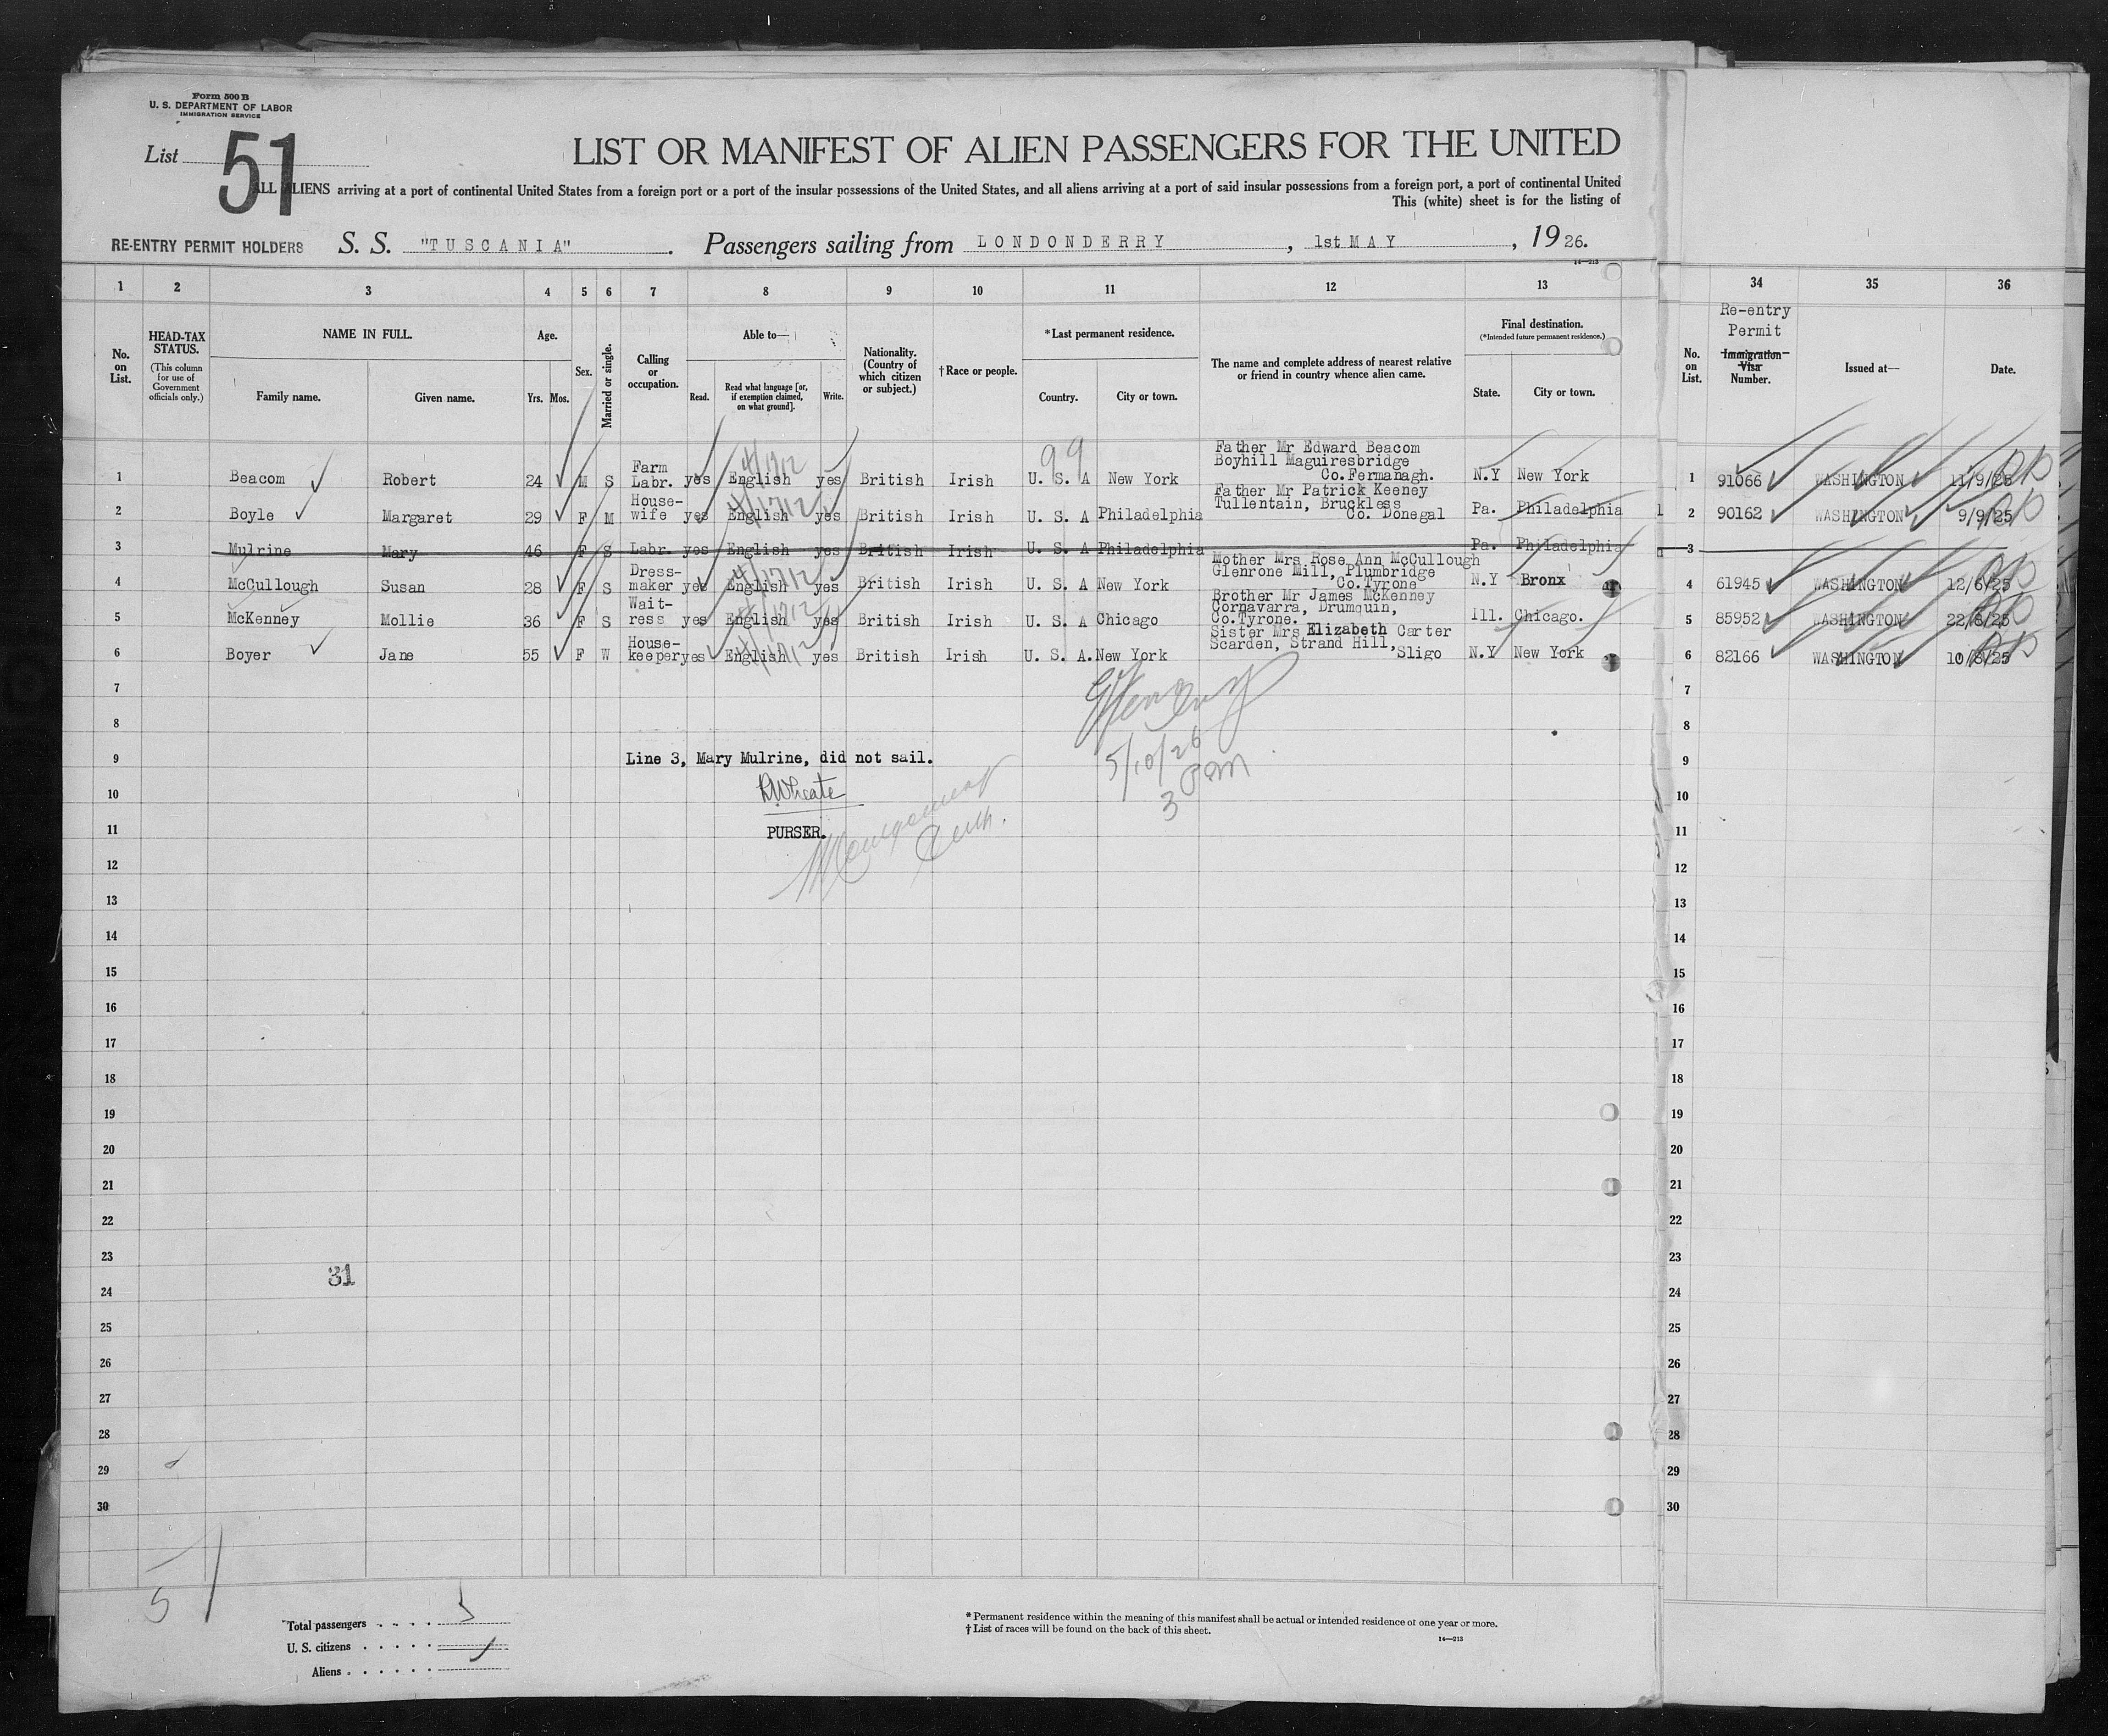 Form 500 B
U. S. DEPARTMENT OF LABOR
IMMIGRATION SERVICE
List 51
LIST OR MANIFEST OF ALIEN PASSENGERS FOR THE UNITED
ALL ALIENS arriving at a port of continental United States from a foreign port or a port of the insular possessions of the United States, and all aliens arriving at a port of said insular possessions from a foreign port, a port of continental United
This (white) sheet is for the listing of
RE-ENTRY PERMIT HOLDERS S. S. "TUSCANIA". Passengers sailing from LONDONDERRY, 1st MAY, 1926.
14—213
1 2 3 4 5 6 7 8 9 10 11 12 13 34 35 36
No. on List.
HEAD-TAX STATUS. (This column for use of Government officials only.)
NAME IN FULL.
Family name. Given name.
Age.
Yrs. Mos.
Sex.
Married or single.
Calling or occupation.
Able to—
Read. Read what language [or, if exemption claimed, on what ground]. Write.
Nationality. (Country of which citizen or subject.)
† Race or people.
*Last permanent residence.
Country. City or town.
The name and complete address of nearest relative or friend in country whence alien came.
Final destination.
(*Intended future permanent residence.)
State. City or town.
No. on List.
Re-entry Permit
Immigration Visa Number.
Issued at—
Date.
99
1 Beacom Robert 24 M S Farm Labr. yes English yes British Irish U. S. A New York Father Mr Edward Beacom Boyhill Maguiresbridge Co.Fermanagh. N.Y New York 1 91066 WASHINGTON 11/9/25
2 Boyle Margaret 29 F M House-wife yes English yes British Irish U. S. A Philadelphia Father Mr Patrick Keeney Tullentain, Bruckless Co. Donegal Pa. Philadelphia 2 90162 WASHINGTON 9/9/25
3 Mulrine Mary 46 F S Labr. yes English yes British Irish U. S. A Philadelphia Pa. Philadelphia 3
4 McCullough Susan 28 F S Dress-maker yes English yes British Irish U. S. A New York Mother Mrs Rose Ann McCullough Glenrone Mill, Plumbridge Co.Tyrone N.Y Bronx 4 61945 WASHINGTON 12/6/25
5 McKenney Mollie 36 F S Wait-ress yes English yes British Irish U. S. A Chicago Brother Mr James McKenney Cornavarra, Drumquin, Co.Tyrone. Ill. Chicago. 5 85952 WASHINGTON 22/8/25
6 Boyer Jane 55 F W House-keeper yes English yes British Irish U. S. A. New York Sister Mrs Elizabeth Carter Scarden, Strand Hill, Sligo N.Y New York 6 82166 WASHINGTON 10/8/25
7 7
8 8
9 Line 3, Mary Mulrine, did not sail. 5/10/26 9
10 3 Pm 10
11 PURSER. 11
12 12
13 13
14 14
15 15
16 16
17 17
18 18
19 19
20 20
21 21
22 22
23 23
31
24 24
25 25
26 26
27 27
28 28
29 29
30 30
51
Total passengers 5
U. S. citizens
Aliens
* Permanent residence within the meaning of this manifest shall be actual or intended residence of one year or more.
† List of races will be found on the back of this sheet.
14—213